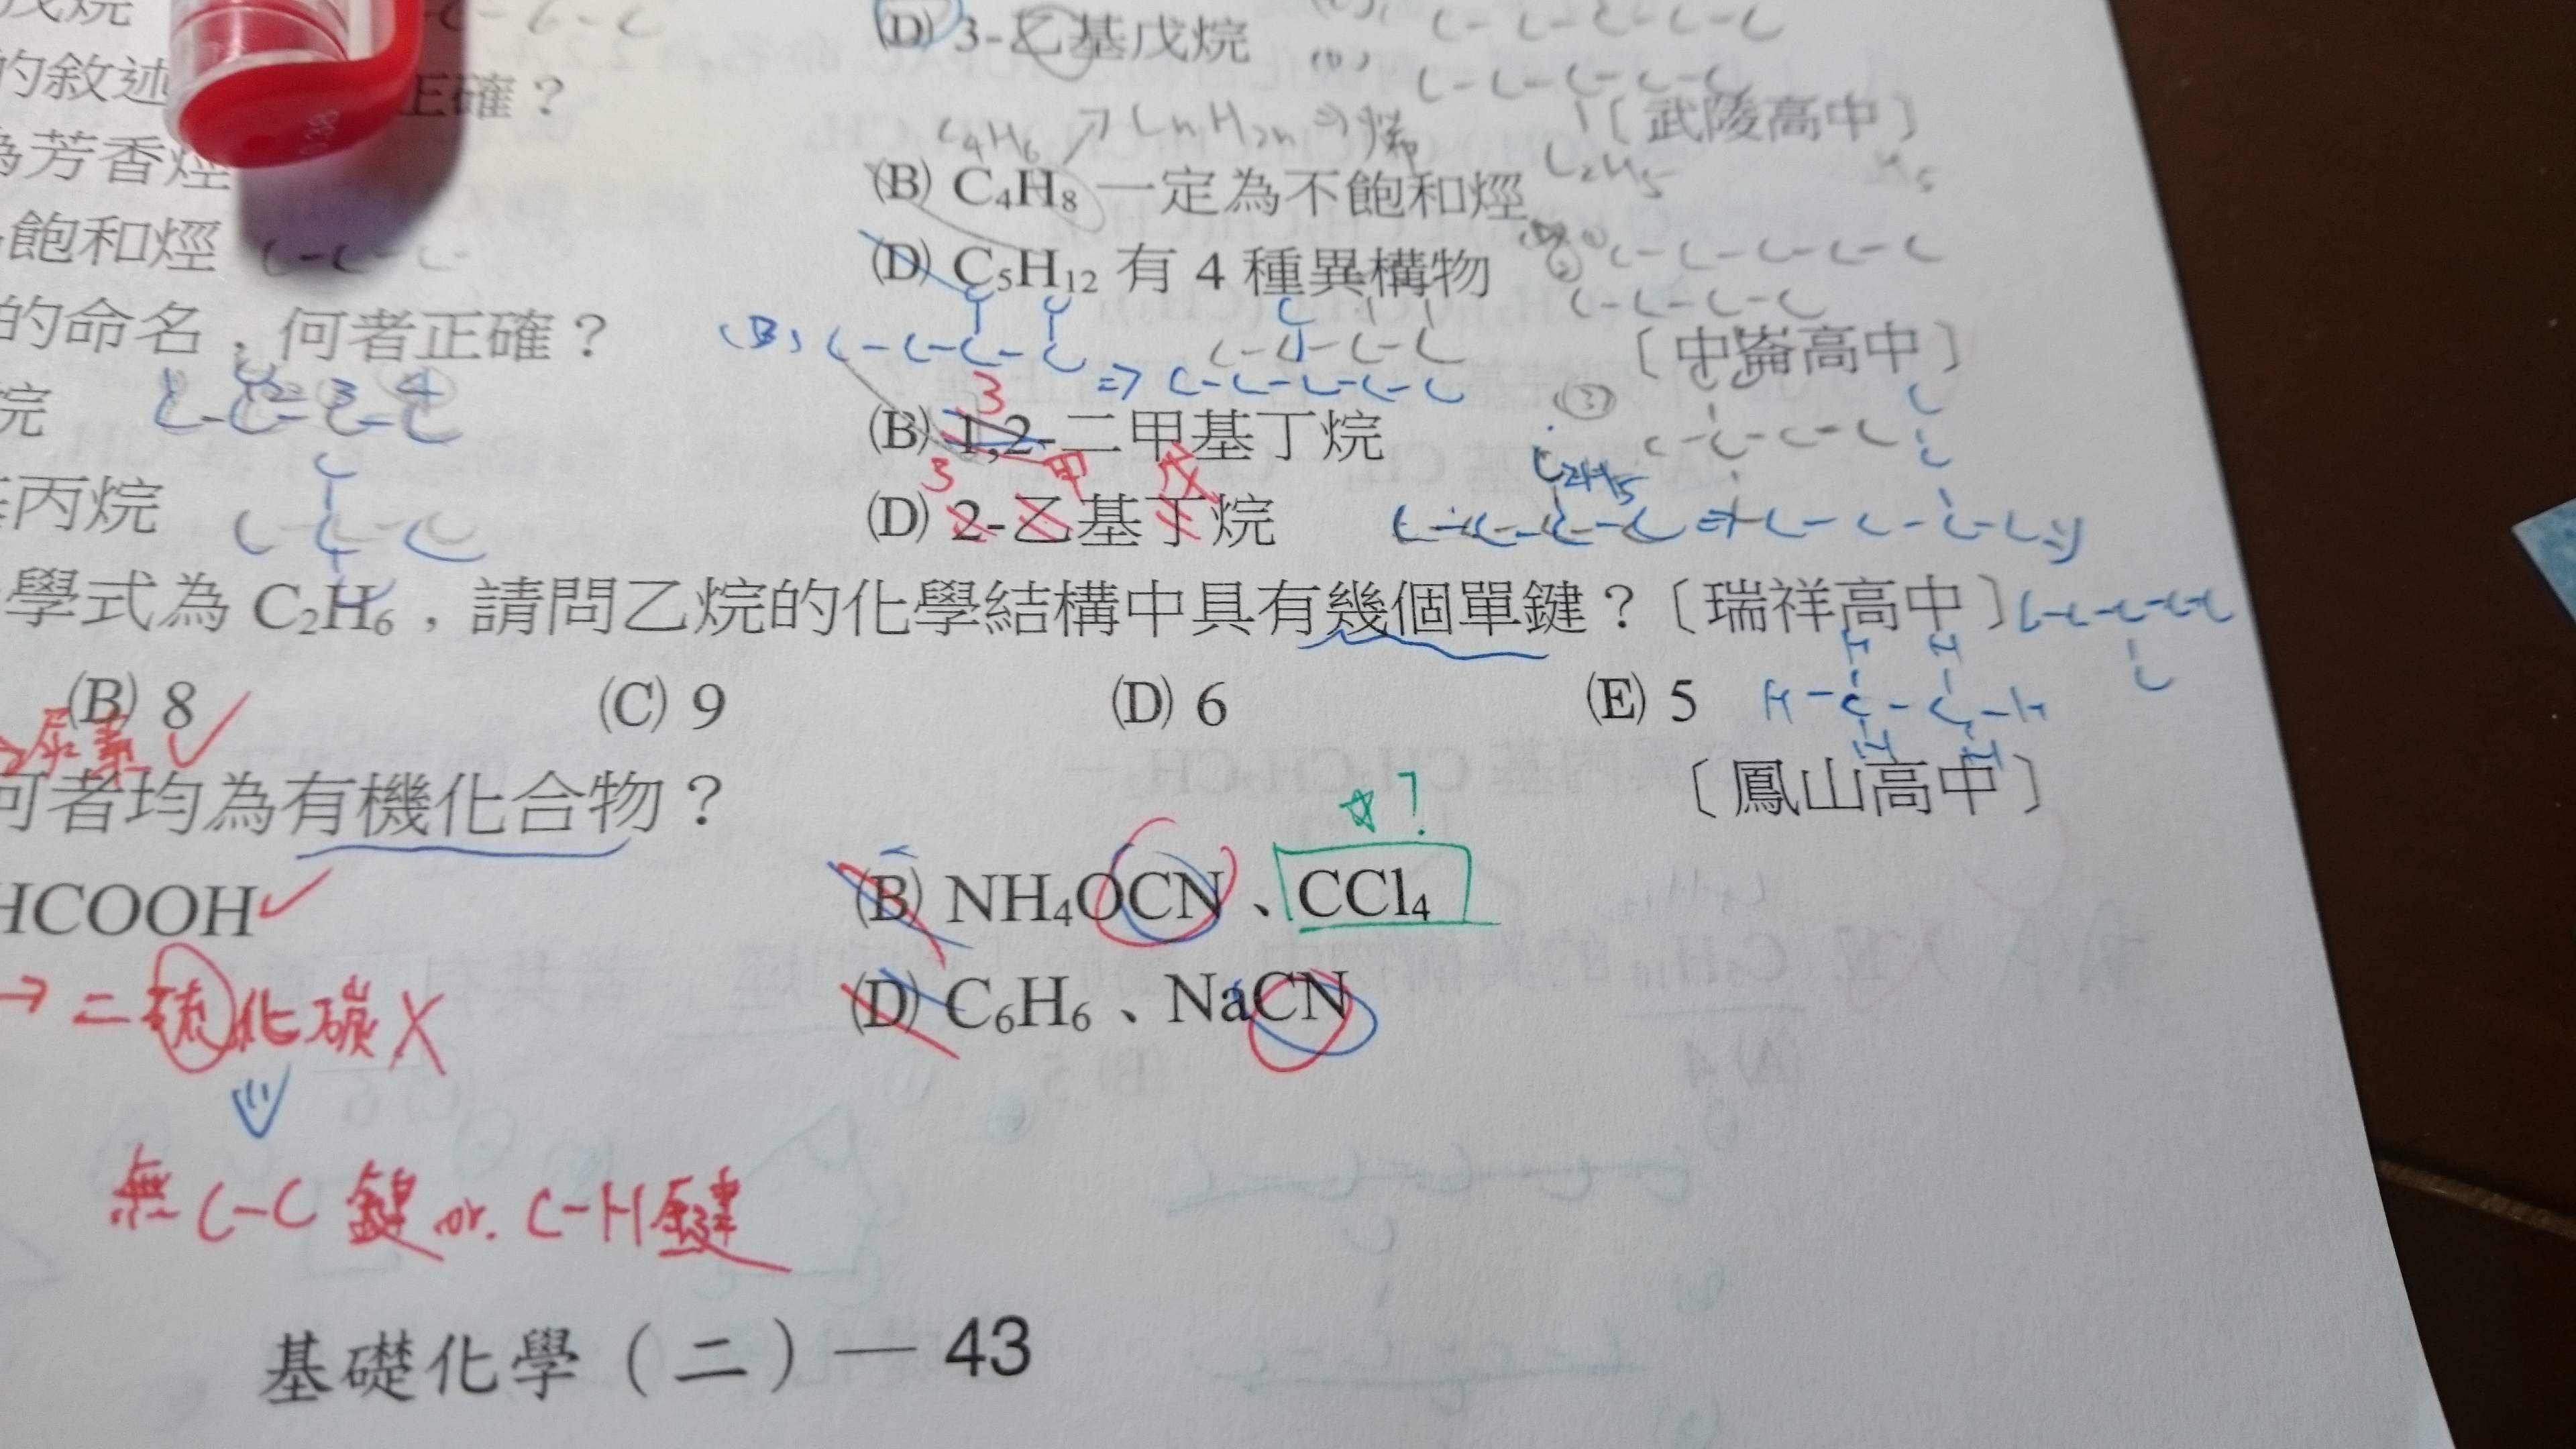 戊烷
(D) 3-乙基戊烷
C-C-C-C-C
的敘述
正確？
C-C-C-C-C
C4H6 → CnH2n ⇒ 烯
〔武陵高中〕
C2H5
為芳香烴
(B) C4H8 一定為不飽和烴
飽和烴
C-C-C
(D) C5H12 有 4 種異構物
C-C-C-C-C
C-C-C-C
的命名，何者正確？
(B) C-C-C-C
⇒ C-C-C-C-C
〔中崙高中〕
烷
3
(B) 1,2-二甲基丁烷
③
丙烷
3 甲 戊
(D) 2-乙基丁烷
C2H5
學式為 C2H6，請問乙烷的化學結構中具有幾個單鍵？〔瑞祥高中〕
(B) 8
(C) 9
(D) 6
(E) 5
H-C-C-H
尿素
何者均為有機化合物？
〔鳳山高中〕
☆？
HCOOH
(B) NH4OCN、CCl4
→ 二硫化碳 X
(D) C6H6、NaCN
無 C-C 鍵 or. C-H 鍵
基礎化學（二）— 43